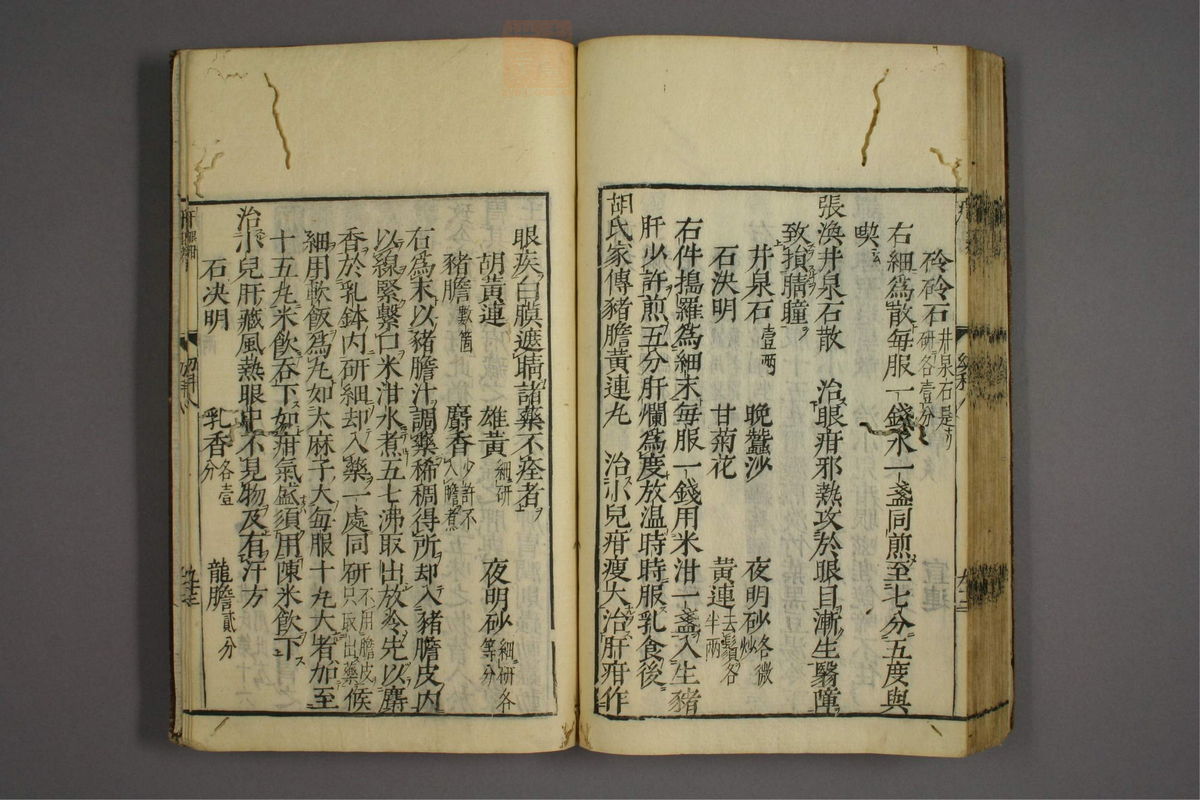 砱砱石井泉石是壱分 研各壹分
右細爲散每服一錢水一盞同煎至七分五度與
喫
張渙井泉石散 治眼疳邪熱攻於眼目漸生翳障
致損睛瞳
井泉石壹兩 晚蠶沙 夜明砂各微炒
石決明 甘菊花 黃連去鬚各半兩
右件搗羅爲細末每服一錢用米泔一盞入生豬
肝少許煎五分肝爛爲度放温時時服乳食後
胡氏家傳豬膽黃連丸 治小兒疳瘦大治肝疳作
眼疾白膜遮睛諸藥不痊者
胡黃連 雄黃細研 夜明砂細研各等分
豬膽數箇 麝香少許不入膽煮
右爲末以豬膽汁調藥稀稠得所却入豬膽皮内
以線緊繫口米泔水煮五七沸取出放冷先以麝
香於乳鉢内研細却入藥一處同研不用膽皮只取出藥候
細用軟飯爲丸如大麻子大每服十丸大者加至
十五丸米飲吞下如疳氣盛須用陳米飲下
治小兒肝藏風熱眼中不見物及有汗方
石決明 乳香各壹分 龍膽貳分